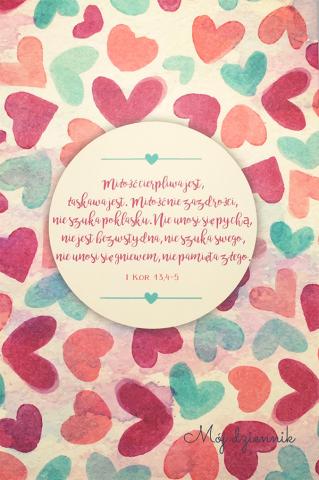 Miłość cierpliwa jest,
łaskawa jest. Miłość nie zazdrości,
nie szuka poklasku. Nie unosi się pychą,
nie jest bezwstydna, nie szuka swego,
nie unosi się gniewem, nie pamięta złego.
1 Kor 13,4-5
Mój dziennik